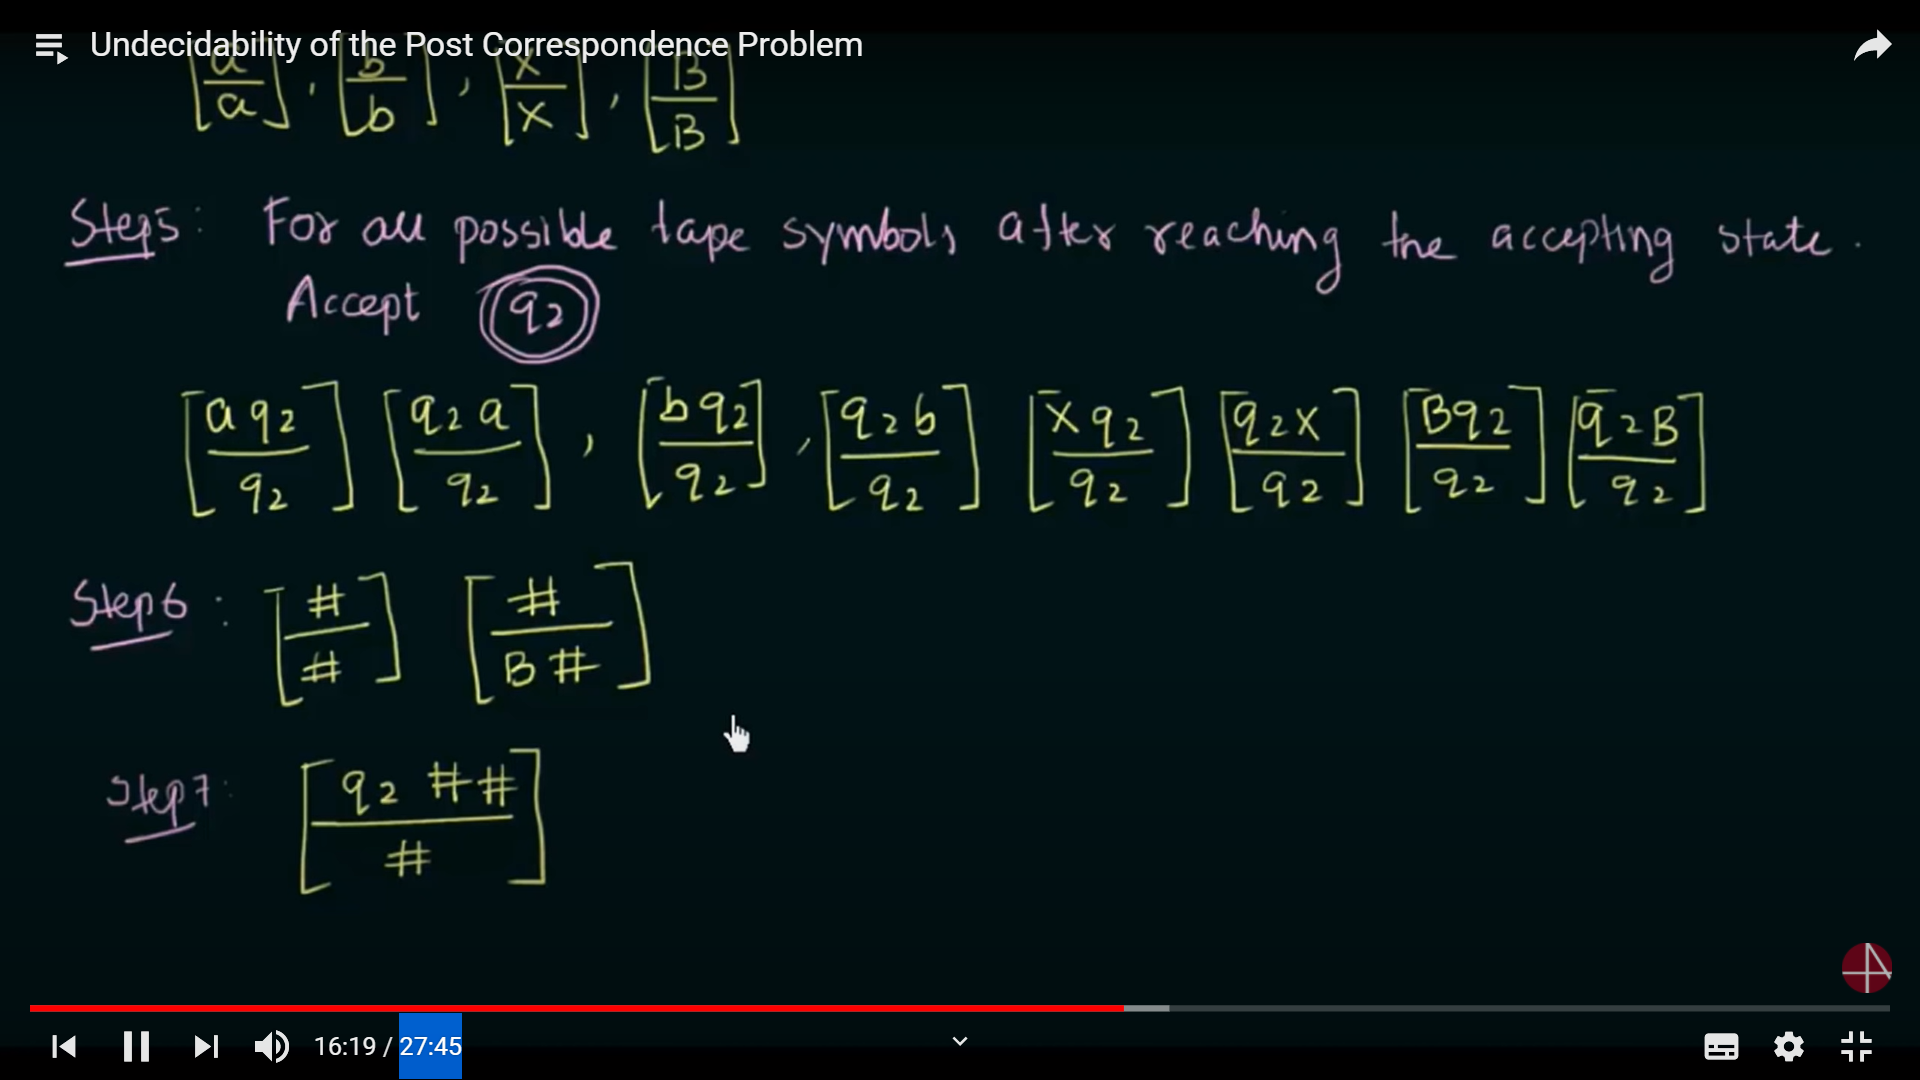 Undecidability of the Post Correspondence Problem
[a/a] , [b/b] , [X/X] , [B/B]
Step5: For all possible tape symbols after reaching the accepting state.
Accept q2
[a q2/q2] [q2 a/q2] , [b q2/q2] , [q2 b/q2] [X q2/q2] [q2 X/q2] [B q2/q2] [q2 B/q2]
Step6: [#/#] [#/B #]
Step7: [q2 ##/#]
16:19 / 27:45